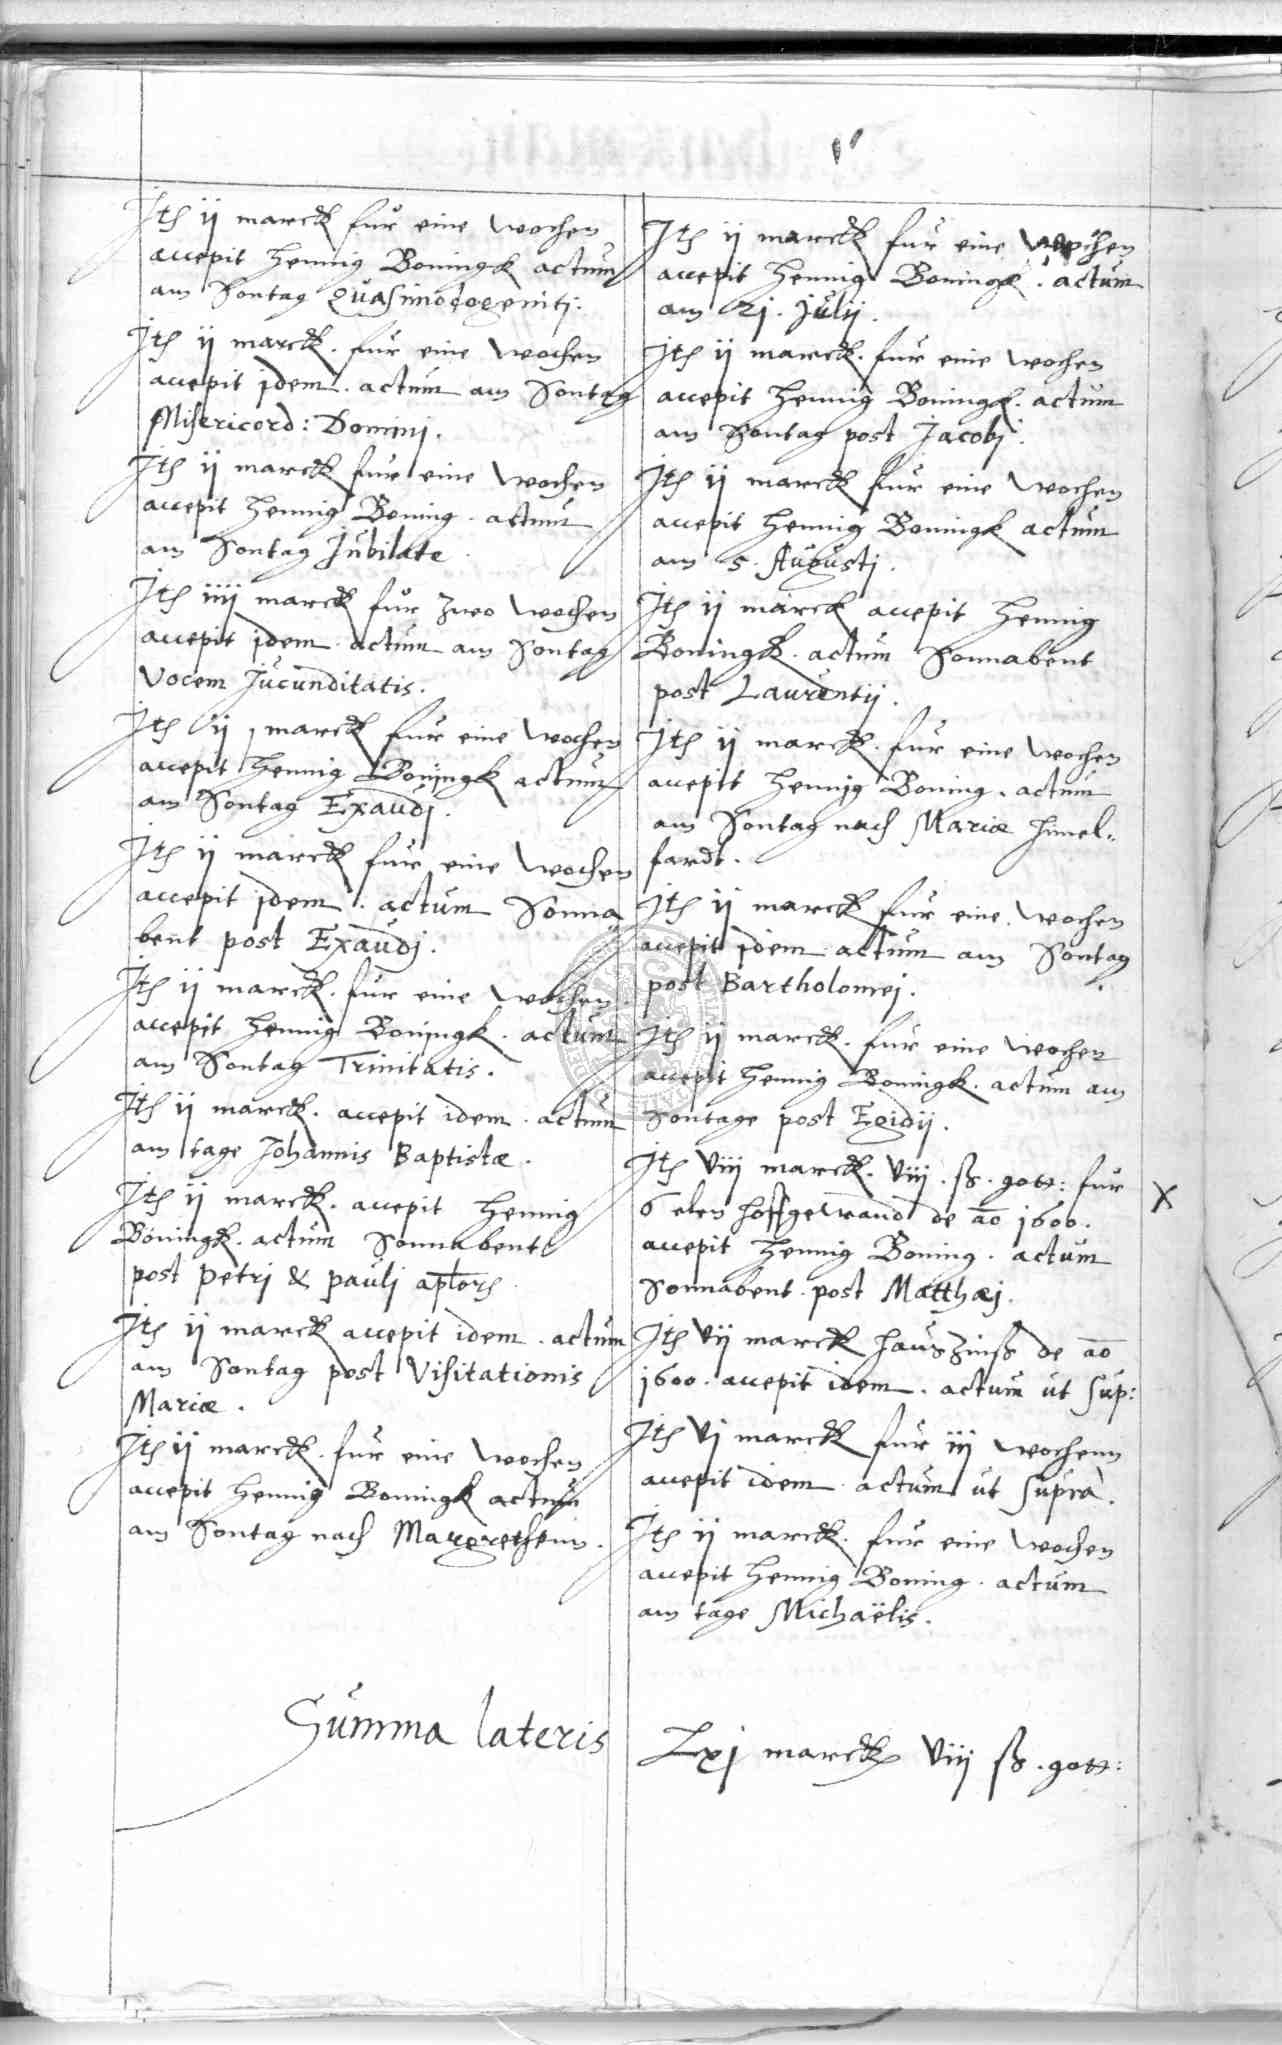 Itē ij marck fur eine wochen
accepit Hennig Boningk actum
am Sontag Quasimodogenitj.
Itē ij marck. fur eine wochen
accepit idem. actum am Sontag
Misericord: Dominj.
Itē ij marck fur eine wochen
accepit Hennig Boning. actum
am Sontag Jubilate.
Itē iiij marck fur zwo wochen
accepit idem actum am Sontag
Vocem Jucunditatis.
Itē ij marck fur eine wochen
accepit Hennig Boningk actum
am Sontag Exaudj.
Itē ij marck fur eine wochen
accepit idem. actum Sonna
bent post Exaudj.
Itē ij marck. fur eine wochen.
accepit Hennig Boningk. actum
am Sontag Trinitatis.
Itē ij marck. accepit idem. actum
am tage Johannis Baptistæ.
Itē ij marck. accepit Hennig
Boningk. actum Sonnabent
post Petrj & Paulj
Itē ij marck accepit idem. actum
am Sontag post Visitationis
Mariæ.
Itē ij marck. fur eine wochen
accepit Hennig Boningk actum
am Sontag nach Margrethenn.
Itē ij marck fur eine wochen
accepit Hennig Boningk. actum
am 21. Julij.
Itē ij marck. fur eine wochen
accepit Hennig Boningk. actum
am Sontag post Jacobj.
Itē ij marck fur eine wochen
accepit Hennig Boningk actum
am 5. Augustj.
Itē ij marck accepit Hennig
Boningk. actum Sonnabent
post Laurentij.
Itē ij marck. fur eine wochen
accepit Hennig Boning. actum
am Sontag nach Mariæ Himel-
fardt.
Itē ij marck fur eine wochen
accepit idem actum am Sontag
post Bartholomej.
Itē ij marck. fur eine wochen
accepit Hennig Boningk. actum am
Sontage post Egidij.
Itē viij marck. viij. ß. gott: fur
6 elen Hoffgewand de aō 1600. X
accepit Hennig Boning. actum
Sonnabent post Matthæj.
Itē vij marck Hauszinß de aō
1600. accepit idem. actum ut sup:
Itē vj marck fur iij wochenn
accepit idem actum ut supra.
Itē ij marck. fur eine wochen
accepit Hennig Boning. actum
am tage Michaëlis.
Summa lateris Lxj marck viij ß. gott: